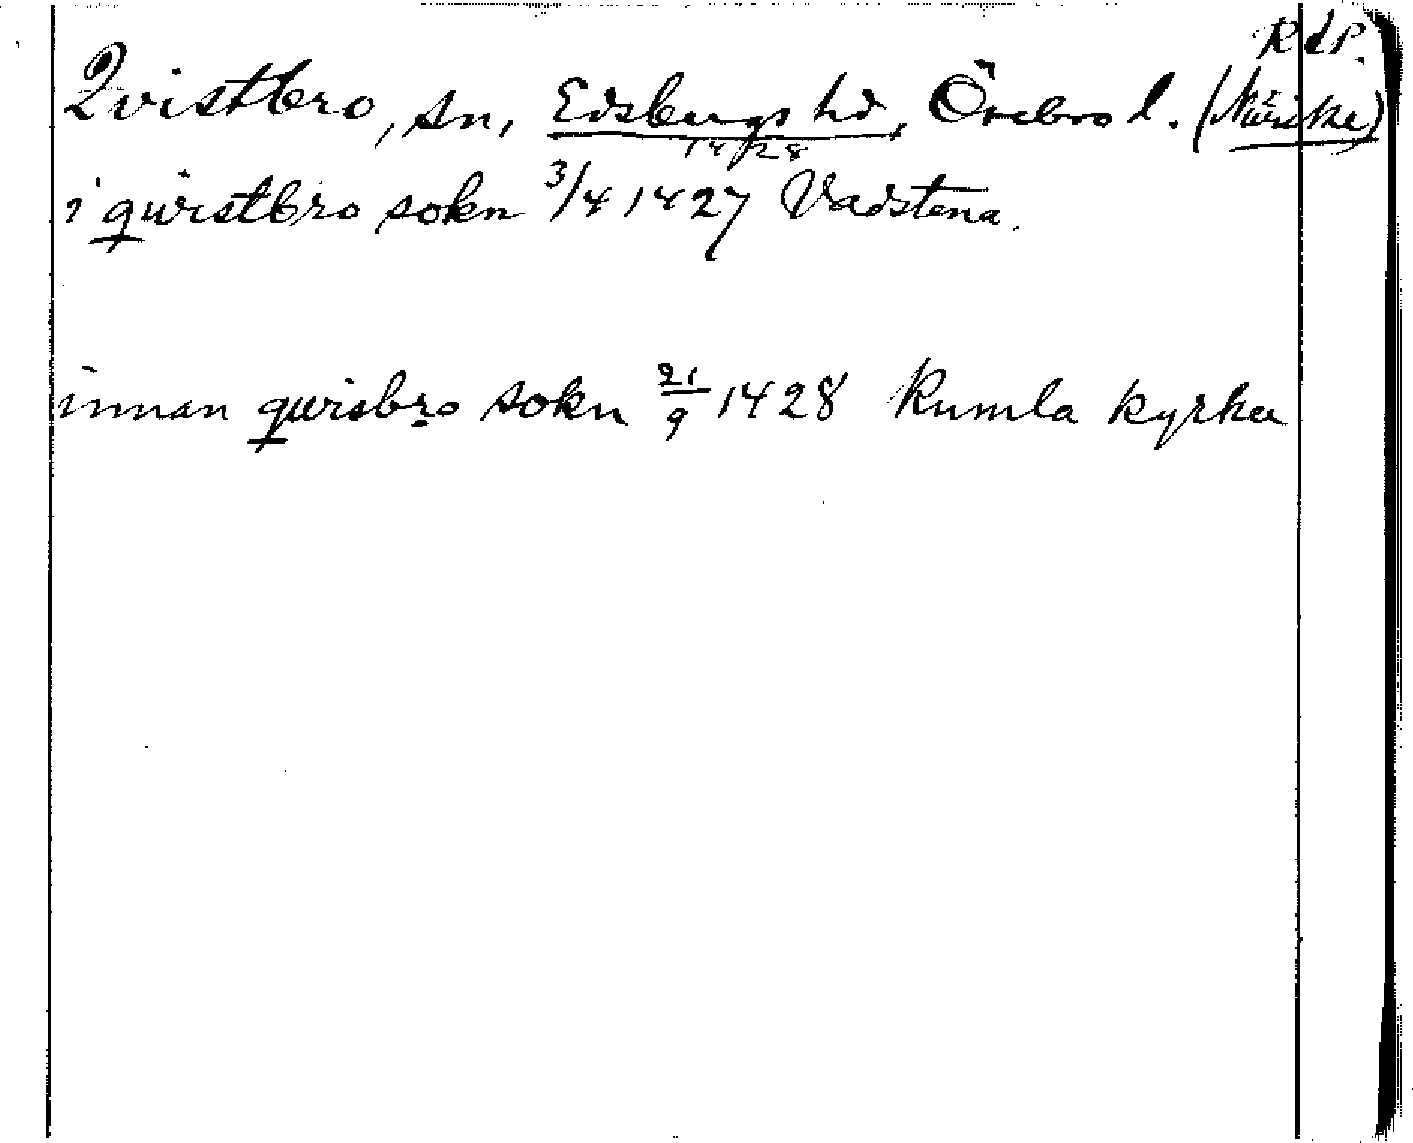 R d P.
Qvistbro, sn, Edsbergs hd, Örebro l. (Närike)
1428
i qwistbro sokn 3/4 1427 Vadstena.
innan qwisbro sokn 21/9 1428 Kumla kyrka